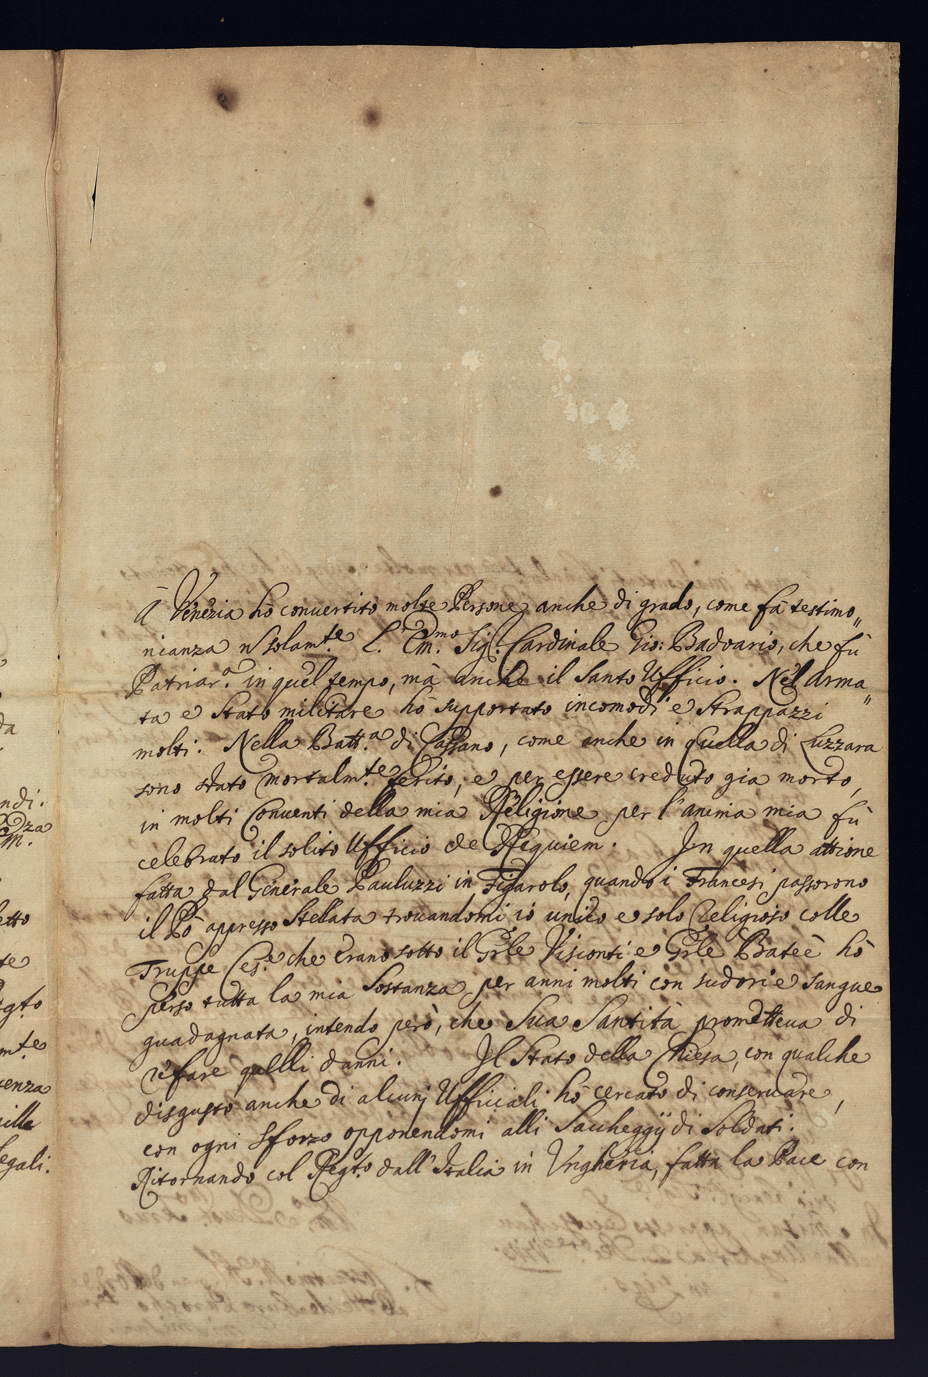 à Venezia hò convertito molte Persone anche di grado, come fà testimo„
nianza n solam.te L' Em.mo Sig.r Cardinale Gio: Badoario, che fù
Patriar.a in quel tempo, mà anche il Santo Ufficio. Nel Arma„
ta e Stato militare hò supportato incomodi e strappazzi
molti: Nella Batt.a di Cassano, come anche in quella di Luzzara
sono stato mortalm.te ferito, e per essere creduto gia morto,
in molti Conventi della mia Religione per l'anima mia fù
celebrato il solito Ufficio de Requiem. In quella attione
fatta dal Generale Pauluzzi in Figarolo, quando i Francesi passorono
il Pò appresso Stellata trovandomi iò unico e solo Religioso colle
Truppe Ces.e che erano sotto il Grle Visconti e Grle Bateè hò
perso tutta la mia Sostanza per anni molti con sudori e sangue
guadagnata, intendo però, che Sua Santità prometteva di
rifare quelli danni. Il Stato della Chiesa, con qualche
disgusto anche di alcunj Ufficiali hò cercato di conservare,
con ogni sforzo opponendomi alli Saccheggij di Soldati.
Ritornando col Regt.o dall'Italia in Ungheria, fatta la Pace con
ndi.
za
m.
etto
te
gto
mte
enza
ille
egali.